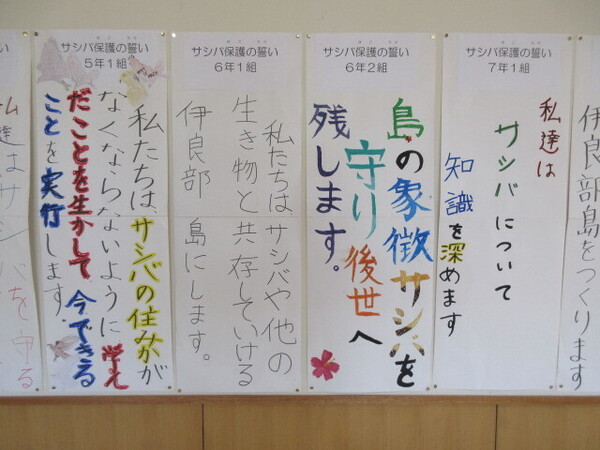 誓い
私達はサシバを守る
サシバ保護の誓い
5年1組
私たちはサシバの住みかが
なくならないように学ん
だことを生かして今できる
ことを実行します。
サシバ保護の誓い
6年1組
私たちはサシバや他の
生き物と共存していける
伊良部島にします。
サシバ保護の誓い
6年2組
島の象徴サシバを
守り後世へ
残します。
サシバ保護の誓い
7年1組
私達は
サシバについて
知識を深めます
サシ
伊良部島をつくります